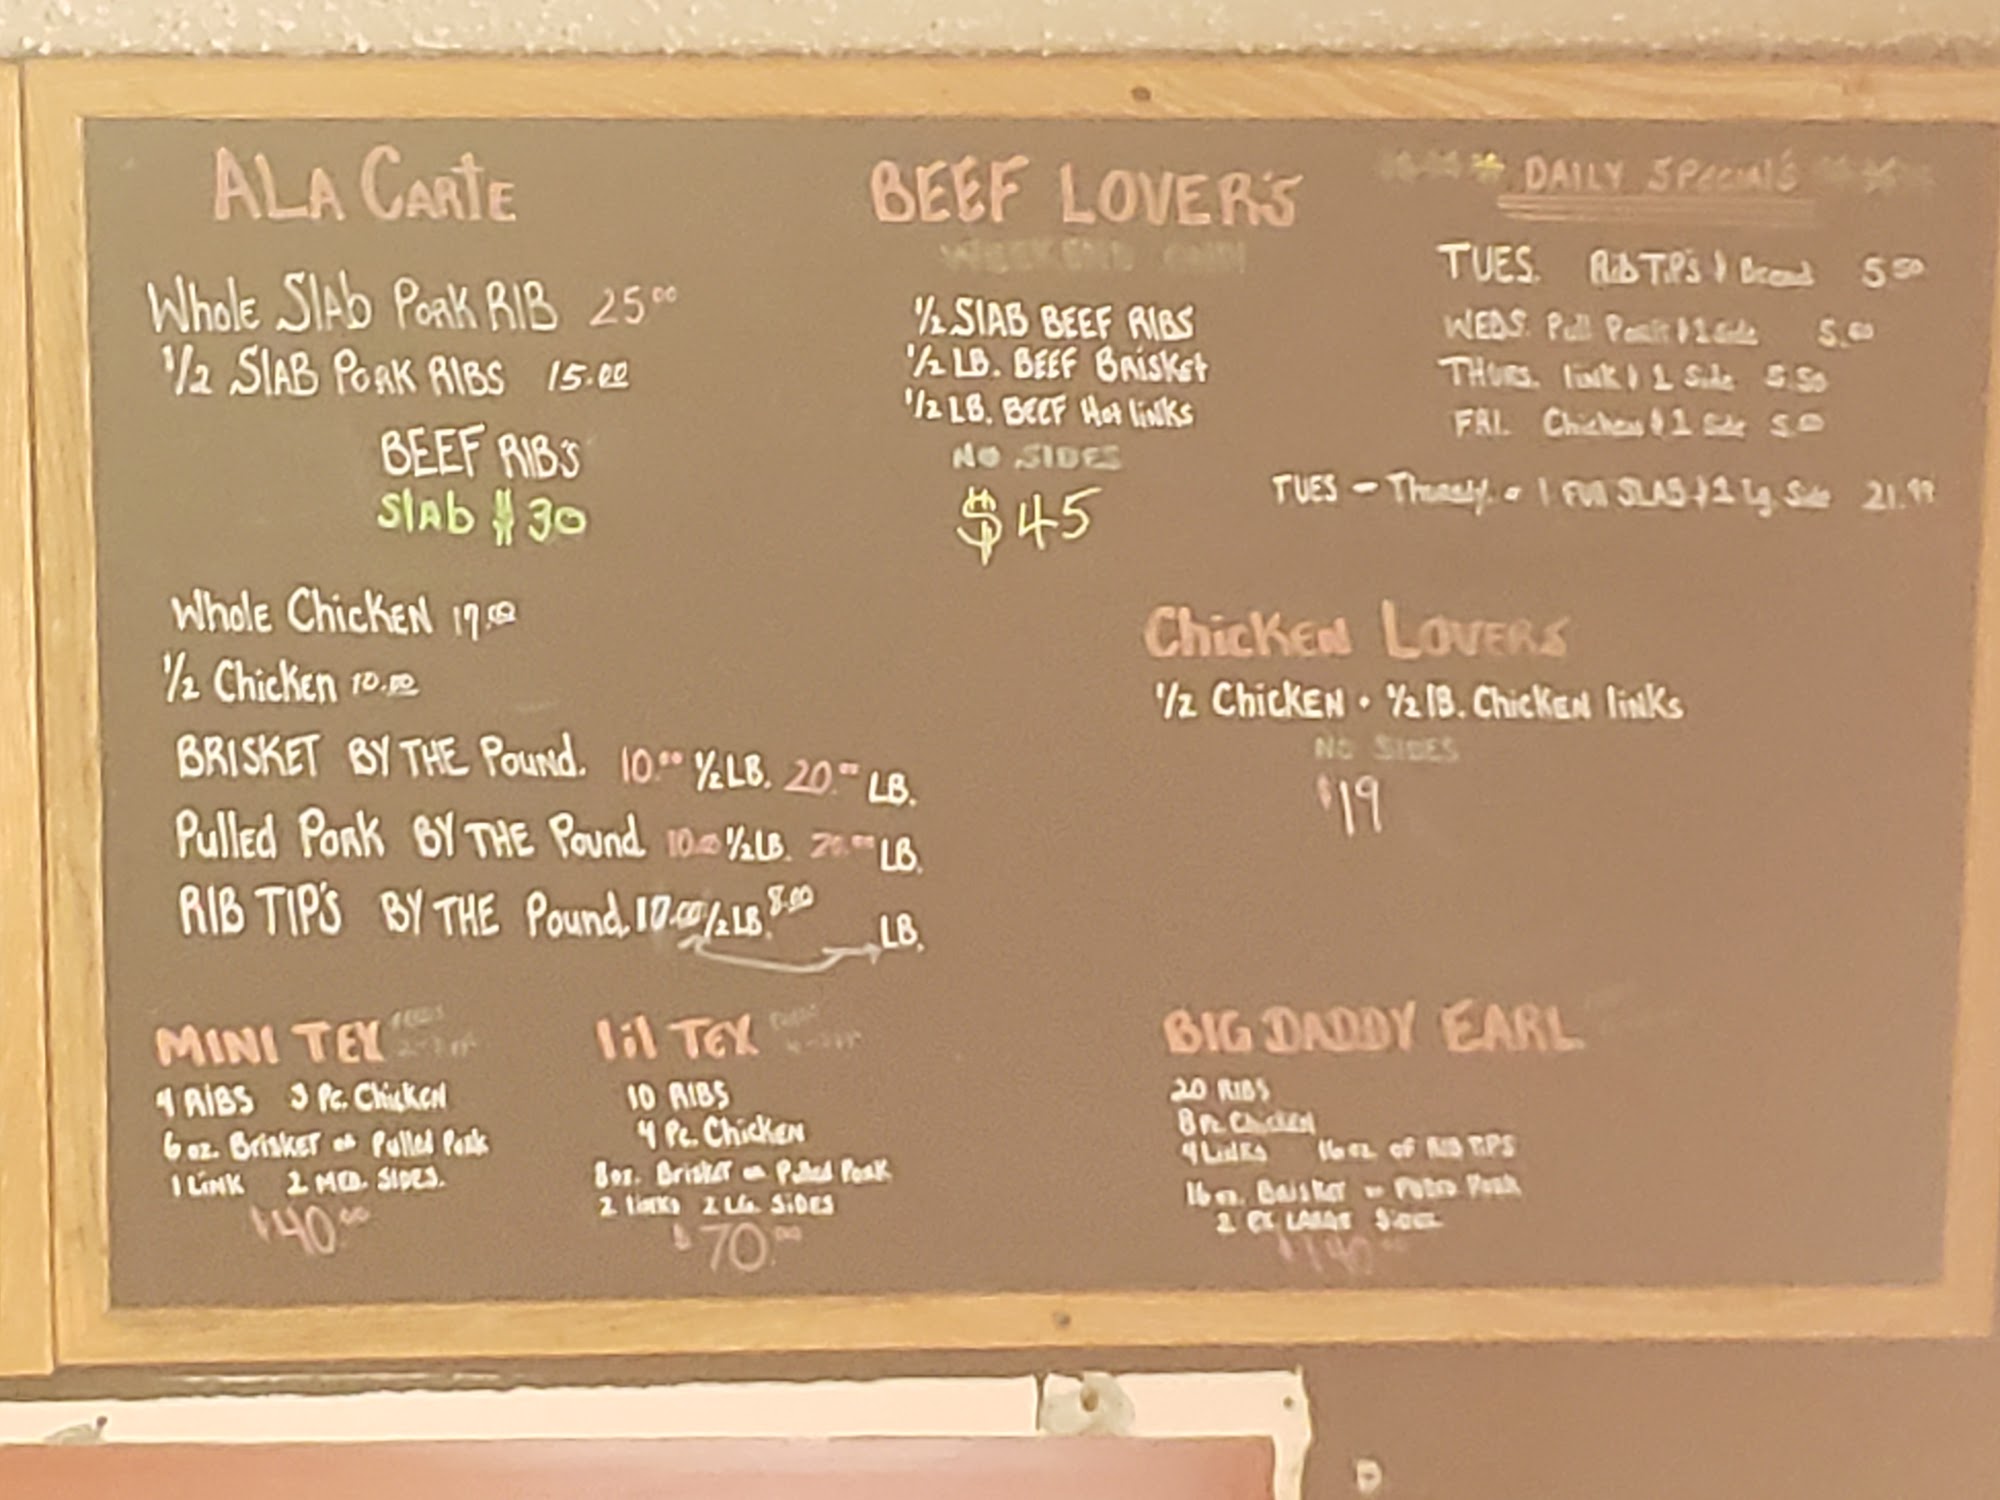 ALA CARTE
Whole Slab Pork RIB 25.00
1/2 SLAB PORK RIBS 15.00
BEEF RIB'S
Slab $30
Whole Chicken 17.00
1/2 Chicken 10.00
BRISKET BY THE Pound. 10.00 1/2 LB. 20.00 LB.
Pulled PORK BY THE Pound 10.00 1/2 LB. 20.00 LB.
RIB TIP'S BY THE Pound. 10.00 1/2 LB. 8.00 LB.
BEEF LOVER'S
WEEKEND ONLY
1/2 SLAB BEEF RIBS
1/2 LB. BEEF Brisket
1/2 LB. BEEF Hot links
NO SIDES
$45
DAILY SPECIAL'S
TUES. Rib TIP'S & Bread 5.50
WEDS. Pull Pork & 1 Side 5.00
THURS. link & 1 Side 5.50
FRI. Chicken & 1 Side 5.00
TUES - 1 Full SLAB & 1 Lg. Side 21.99
Chicken LOVERS
1/2 Chicken • 1/2 lB. Chicken links
NO SIDES
$19
MINI TEX
4 RIBS 3 Pc. Chicken
6 oz. Brisket or Pulled Pork
1 LINK 2 MED. SIDES.
$40.00
lil TEX
10 RIBS
4 Pc. Chicken
8 oz. Brisket or Pulled Pork
2 links 2 LG. SIDES
$70.00
BIG DADDY EARL
20 RIBS
8 Pc. Chicken
4 Links 16 oz. OF RIB TIPS
16 oz. Brisket or Pulled Pork
2 EX LARGE SIDES
$140.00